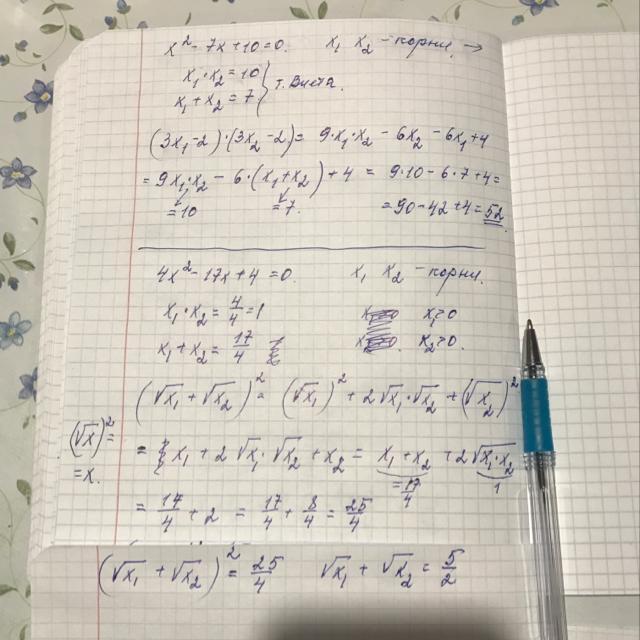 x² - 7x + 10 = 0. x₁ x₂ - корни. →
x₁·x₂ = 10
x₁ + x₂ = 7 } т. Виета.
(3x₁ - 2)·(3x₂ - 2) = 9·x₁·x₂ - 6x₂ - 6x₁ + 4
= 9x₁·x₂ - 6·(x₁ + x₂) + 4 = 9·10 - 6·7 + 4 =
=10 =7. = 90 - 42 + 4 = 52
4x² - 17x + 4 = 0. x₁ x₂ - корни.
x₁·x₂ = 4/4 = 1 x₁>0
x₁ + x₂ = 17/4 x₂>0.
(√x₁ + √x₂)² = (√x₁)² + 2√x₁·√x₂ + (√x₂)²
(√x)² = = x₁ + 2√x₁·√x₂ + x₂ = x₁ + x₂ + 2√x₁·x₂
= x. = 17/4 1
= 17/4 + 2 = 17/4 + 8/4 = 25/4
(√x₁ + √x₂)² = 25/4 √x₁ + √x₂ = 5/2